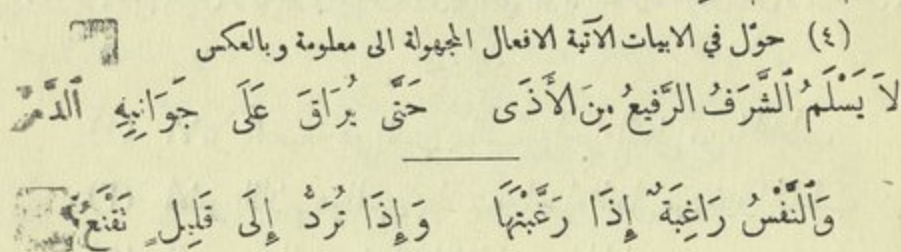 (٤) حوّل في الابيات الآتية الافعال المجهولة الى معلومة وبالعكس
لاَ يَسْلَمُ ٱلشَّرَفُ الرَّفيعُ مِنَ الأَذَى حَتَّى يُرَاقَ عَلَى جَوَانِبِهِ ٱلدَّمُ
وَٱلنَّفْسُ رَاغِبَةٌ إِذَا رَغَّبْتَهَا وَإِذَا تُرَدُّ إِلَى قَلِيلٍ تَقْنَعُ